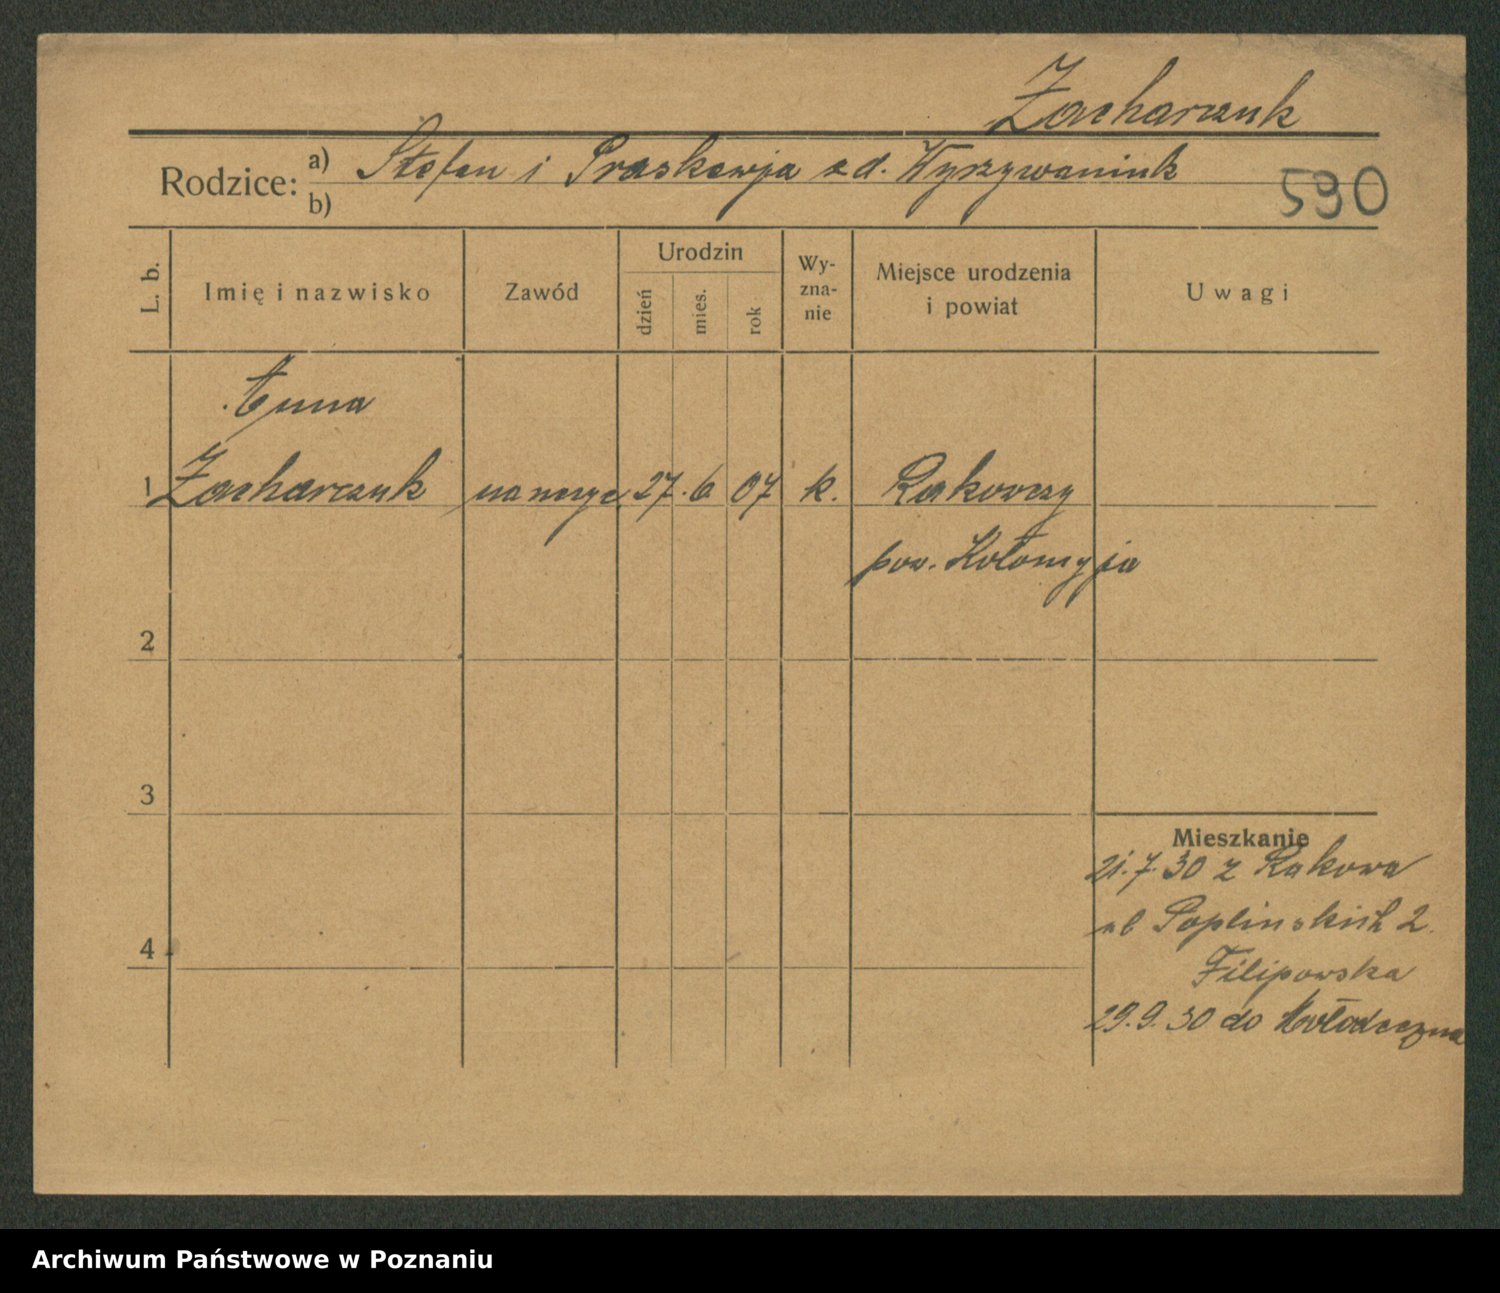 Zacharczuk
Rodzice: a) Stefan i Praskewja zd. Wyszywaniuk
b)
590
L. b. Imię i nazwisko Zawód Urodzin dzień mies. rok Wy-zna-nie Miejsce urodzenia i powiat Uwagi
Anna
1 Zacharczuk 27. 6 07 k. Rakowczy
pow. Kołomyja
2
3
Mieszkanie
21.7.30 z Rakowa
ul Poplinskich 2.
4
Filipowska
29.9.30 do Mołodeczna
Archiwum Państwowe w Poznaniu